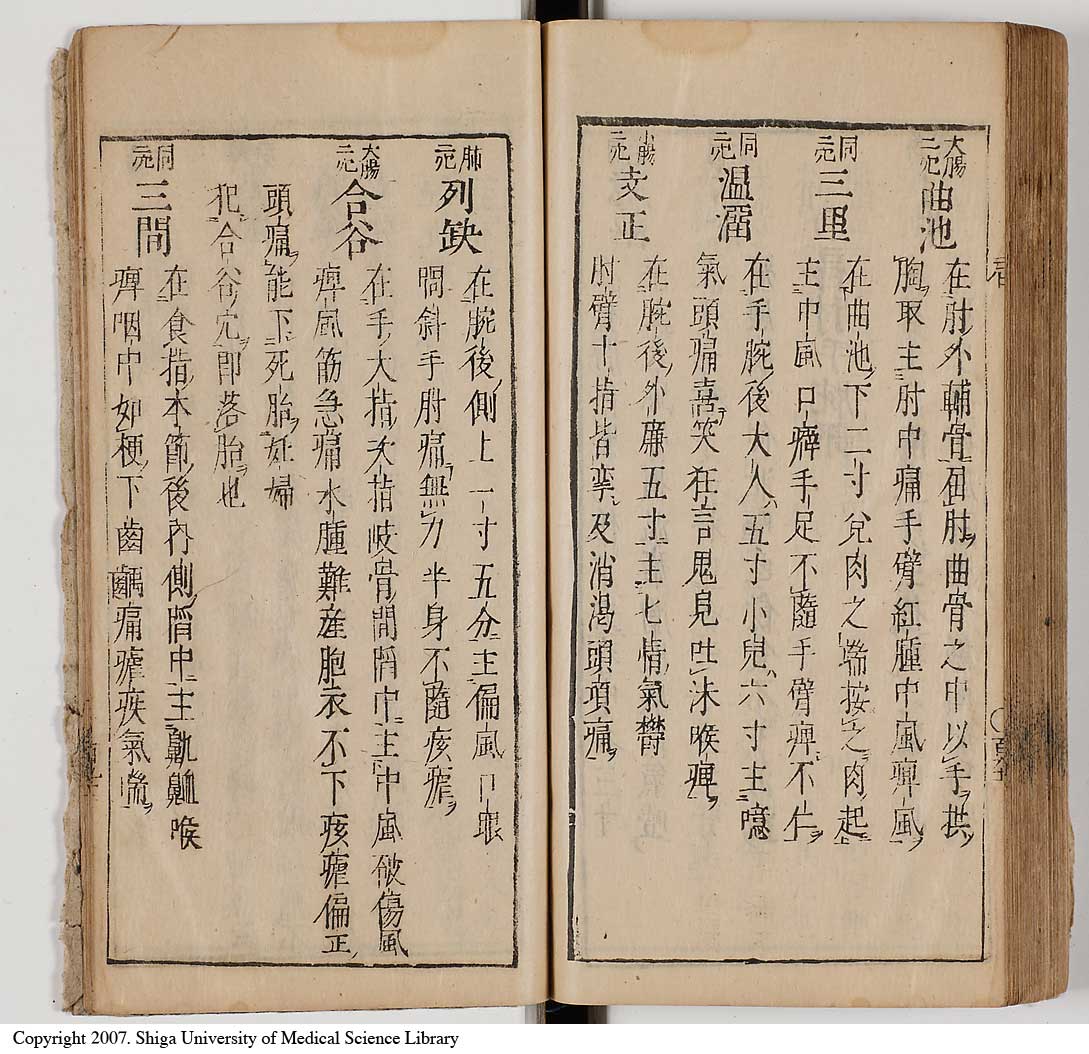 大腸 二穴 曲池
在肘外輔骨屈肘曲骨之中以手拱
胸取主肘中痛手臂紅腫中風痺風
同 二穴 三里
在曲池下二寸兌肉之端按之肉起
主中風口癖手足不隨手臂痺不仁
同 二穴 温溜
在手腕後大人五寸小兒六寸主噫
氣頭痛喜笑狂言鬼見吐沫喉痺
小腸 二穴 支正
在腕後外廉五寸主七情氣欝
肘臂十指皆攣及消渇頭項痛
肺 二穴 列缺
在腕後側上一寸五分主偏風口眼
喎斜手肘痛無力半身不隨痎瘧
大腸 二穴 合谷
在手大指次指岐骨間陷中主中風破傷風
痺風筋急痛水腫難産胞衣不下痎瘧偏正
頭痛能下死胎妊婦
犯合谷穴即落胎也
同 二穴 三間
在食指本節後内側陷中主鼽衂喉
痺咽中如梗下齒齲痛瘧疾氣喘
Copyright 2007. Shiga University of Medical Science Library